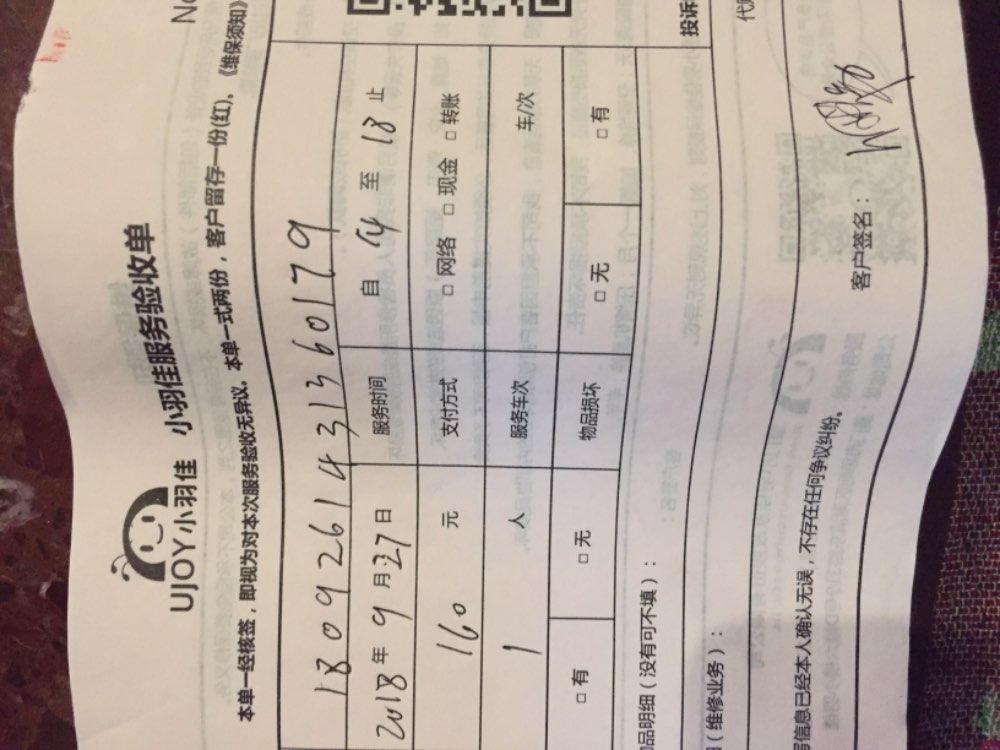 No
UJOY小羽佳 小羽佳服务验收单
本单一经核签，即视为对本次服务验收无异议。本单一式两份，客户留存一份(红)、《维保须知》
18092614313660179
2018年9月27日 服务时间 自 14 至 18 止
160 元 支付方式 □ 网络 □ 现金 □ 转账
1 人 服务车次 车/次
□ 有 □ 无 物品损坏 □ 无 □ 有
品明细（没有可不填）： 投诉
（维修业务）： 代
信息已经本人确认无误，不存在任何争议纠纷。
客户签名：